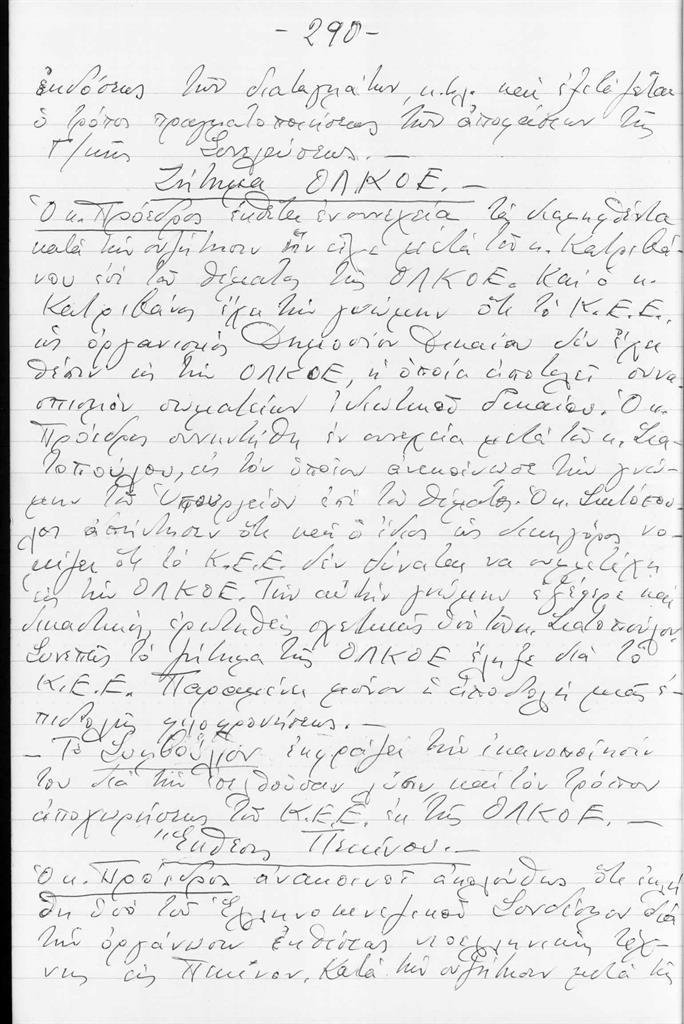 - 290 -
ἐκδόσεως τῶν διαταγμάτων, κ.λ. καὶ ἐξετάζεται
ὁ τρόπος πραγματοποιήσεως τῶν ἀποφάσεων τῆς
Γ/κῆς Συνελεύσεως. —
Ζήτημα ΟΛΚΟΕ. —
Ὁ κ. Πρόεδρος ἐκθέτει ἐν συνεχείᾳ τὰ διαμειφθέντα
κατὰ τὴν συζήτησιν ἣν εἶχε μετὰ τοῦ κ. Κατριβά-
νου ἐπὶ τοῦ θέματος τῆς ΟΛΚΟΕ. Καὶ ὁ κ.
Κατριβάνος ἔχει τὴν γνώμην ὅτι τὸ Κ.Ε.Ε.
ὡς ὀργανισμὸς Δημοσίου Δικαίου δὲν ἔχει
θέσιν εἰς τὴν ΟΛΚΟΕ, ἡ ὁποία ἀποτελεῖ συνα-
σπισμὸν σωματείων ἰδιωτικοῦ δικαίου. Ὁ κ.
Πρόεδρος συνηντήθη ἐν συνεχείᾳ μετὰ τοῦ κ. Σια-
τοπούλου, εἰς τὸν ὁποῖον ἀνεκοίνωσε τὴν γνώ-
μην τοῦ Ὑπουργείου ἐπὶ τοῦ θέματος. Ὁ κ. Σιατόπου-
λος ἀπήντησεν ὅτι καὶ ὁ ἴδιος ὡς δικηγόρος νο-
μίζει ὅτι τὸ Κ.Ε.Ε. δὲν δύναται νὰ συμμετέχῃ
εἰς τὴν ΟΛΚΟΕ. Τὴν αὐτὴν γνώμην ἐξέφερε καὶ
δικαστικὸς ἐρωτηθεὶς σχετικῶς ὑπὸ τοῦ κ. Σιατοπούλου.
Συνεπῶς τὸ ζήτημα τῆς ΟΛΚΟΕ ἔληξε διὰ τὸ
Κ.Ε.Ε. Παραμένει μόνον ἡ ἀποστολὴ μιᾶς ἐ-
πιστολῆς φιλοφρονήσεως. —
— Τὸ Συμβούλιον ἐκφράζει τὴν ἱκανοποίησίν
του διὰ τὴν ἐπελθοῦσαν λύσιν καὶ τὸν τρόπον
ἀποχωρήσεως τοῦ Κ.Ε.Ε. ἐκ τῆς ΟΛΚΟΕ. —
Ἔκθεσις Πεκίνου. —
Ὁ κ. Πρόεδρος ἀνακοινοῖ ἀκολούθως ὅτι ἐκλή-
θη ὑπὸ τοῦ Ἑλληνοκινεζικοῦ Συνδέσμου διὰ
τὴν ὀργάνωσιν ἐκθέσεως νεοελληνικῆς τέχ-
νης εἰς Πεκῖνον. Κατὰ τὴν συζήτησιν μετὰ τῆς